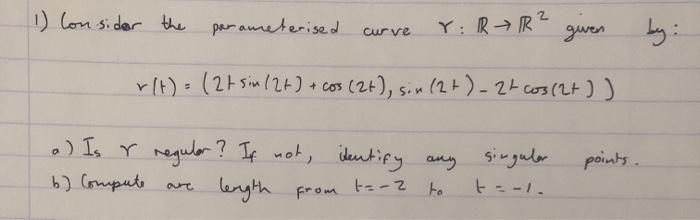 1) Consider the parameterised curve γ: ℝ → ℝ² given by:
r(t) = (2t sin(2t) + cos(2t), sin(2t) - 2t cos(2t))
a) Is γ regular? If not, identify any singular points.
b) Compute arc length from t=-2 to t=-1.